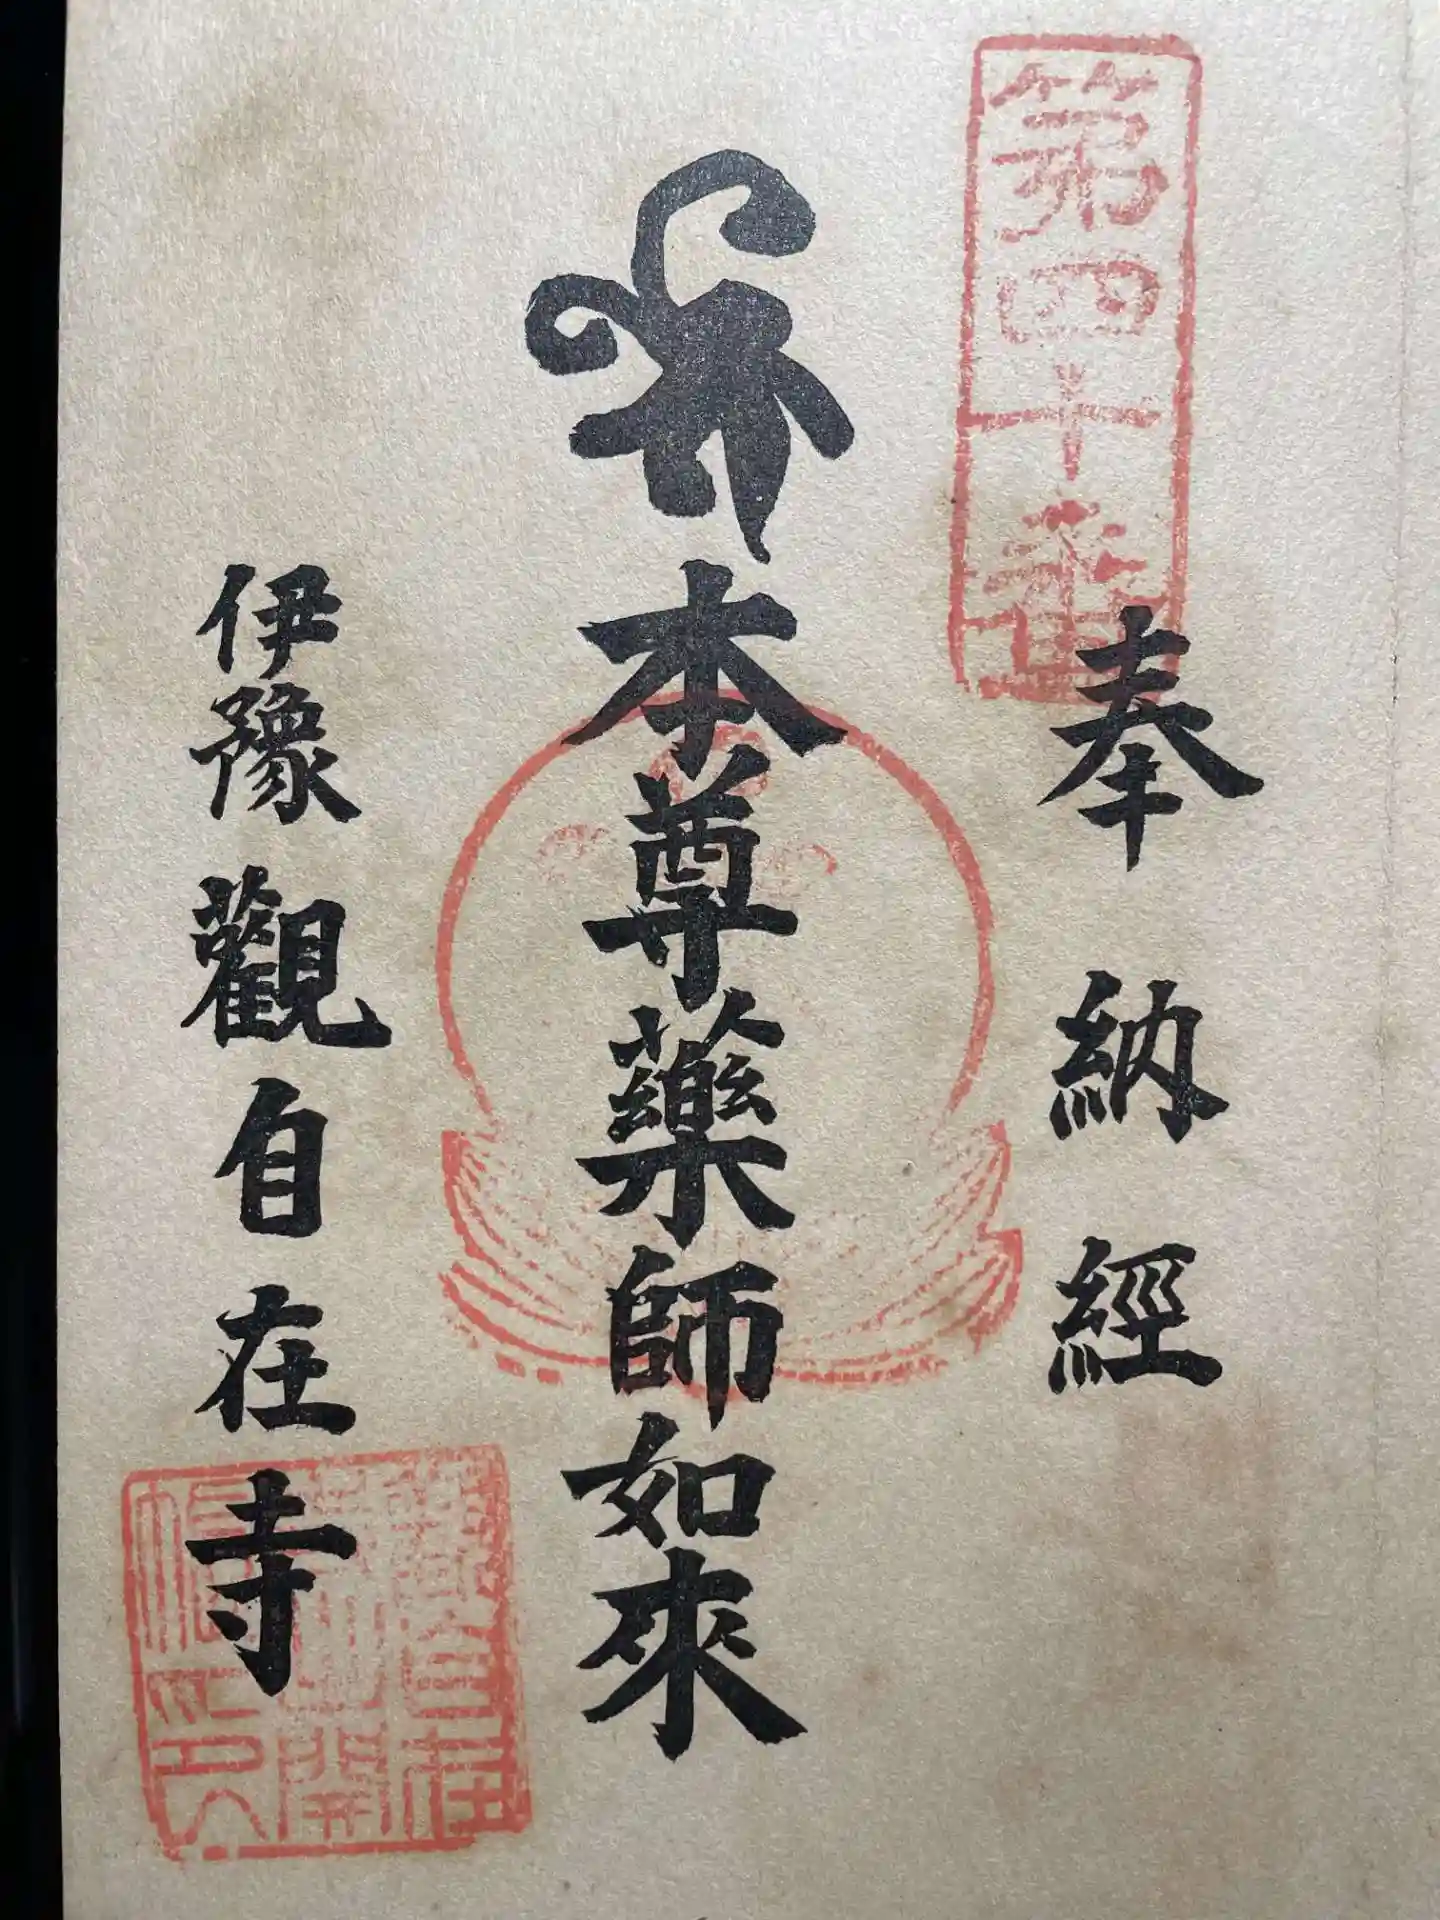 第四十番
奉納經
本尊藥師如來
伊豫觀自在寺